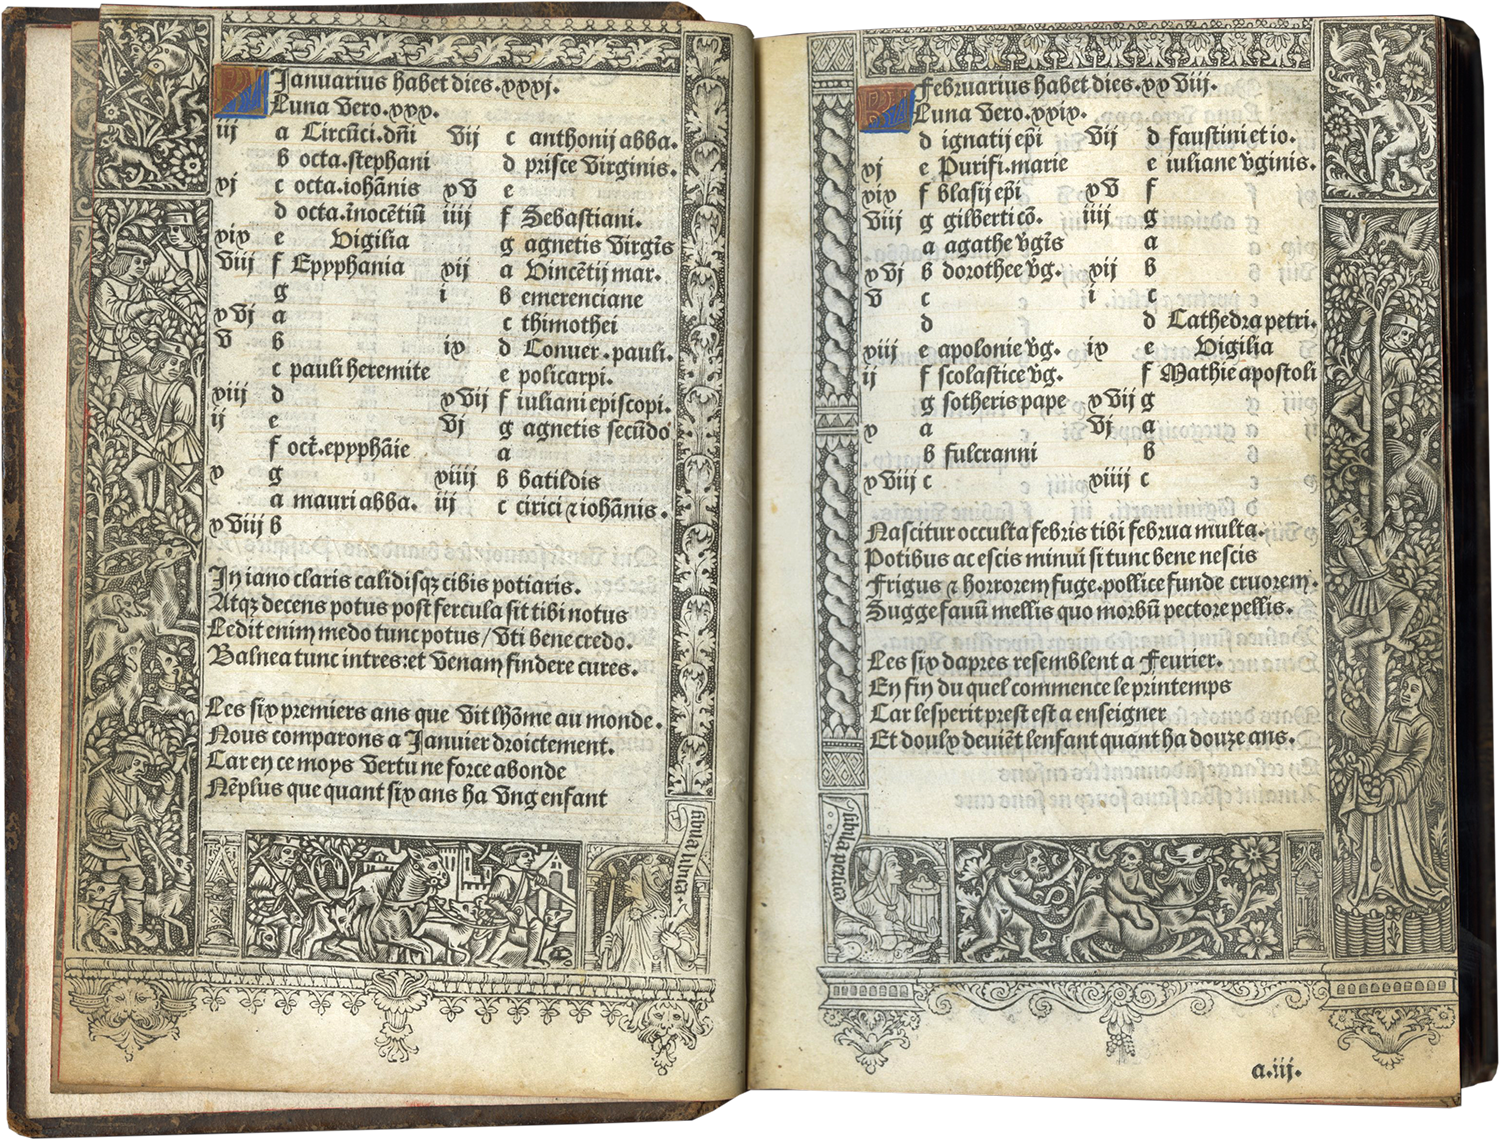 Januarius habet dies.xxxj.
Luna vero.xxx.
iij a Circūci.dn̄i vij c anthonij abba.
b octa.stephani d prisce virginis.
xj c octa.iohānis xv e
d octa.īnocētiū iiij f Sebastiani.
xix e Vigilia g agnetis virgīs
viij f Epyphania xij a Vincētij mar.
g i b emerenciane
xvj a c thimothei
v b ix d Conuer.pauli.
c pauli heremite e policarpi.
xiij d xvij f iuliani episcopi.
ij e vj g agnetis secūdo
f oct̄.epyphāie a
x g xiiij b batildis
a mauri abba. iij c cirici ⁊ iohānis.
xviij b
In iano claris calidisqꝫ cibis potiaris.
Atqꝫ decens potus post fercula sit tibi notus
Ledit enim medo tunc potus/vti bene credo.
Balnea tunc intres:et venam findere cures.
Les six premiers ans que vit lhōme au monde.
Nous comparons a Januier droictement.
Car en ce moys vertu ne force abonde
Nēplus que quant six ans ha vng enfant
Februarius habet dies.xxviij.
Luna vero.xxix.
d ignatij ep̄i vij d faustini et io.
xj e Purifi.marie e iuliane v̄ginis.
xix f blasij ep̄i xv f
viij g gilberti cō. iiij g
a agathe v̄gīs a
xvj b dorothee v̄g. xij b
v c i c
d d Cathedra petri.
xiij e apolonie v̄g. ix e Vigilia
ij f scolastice v̄g. f Mathie apostoli
g sotheris pape xvij g
x a vj a
b fulcranni b
xviij c xiiij c
Nascitur occulta febris tibi februa multa.
Potibus ac escis minui si tunc bene nescis
Frigus ⁊ horrorem fuge.pollice funde cruorem.
Sugge fauū mellis quo morbū pectore pellis.
Les six dapres resemblent a Feurier.
En fin du quel commence le printemps
Car lesperit prest est a enseigner
Et doulx deuiēt lenfant quant ha douze ans.
a.iij.